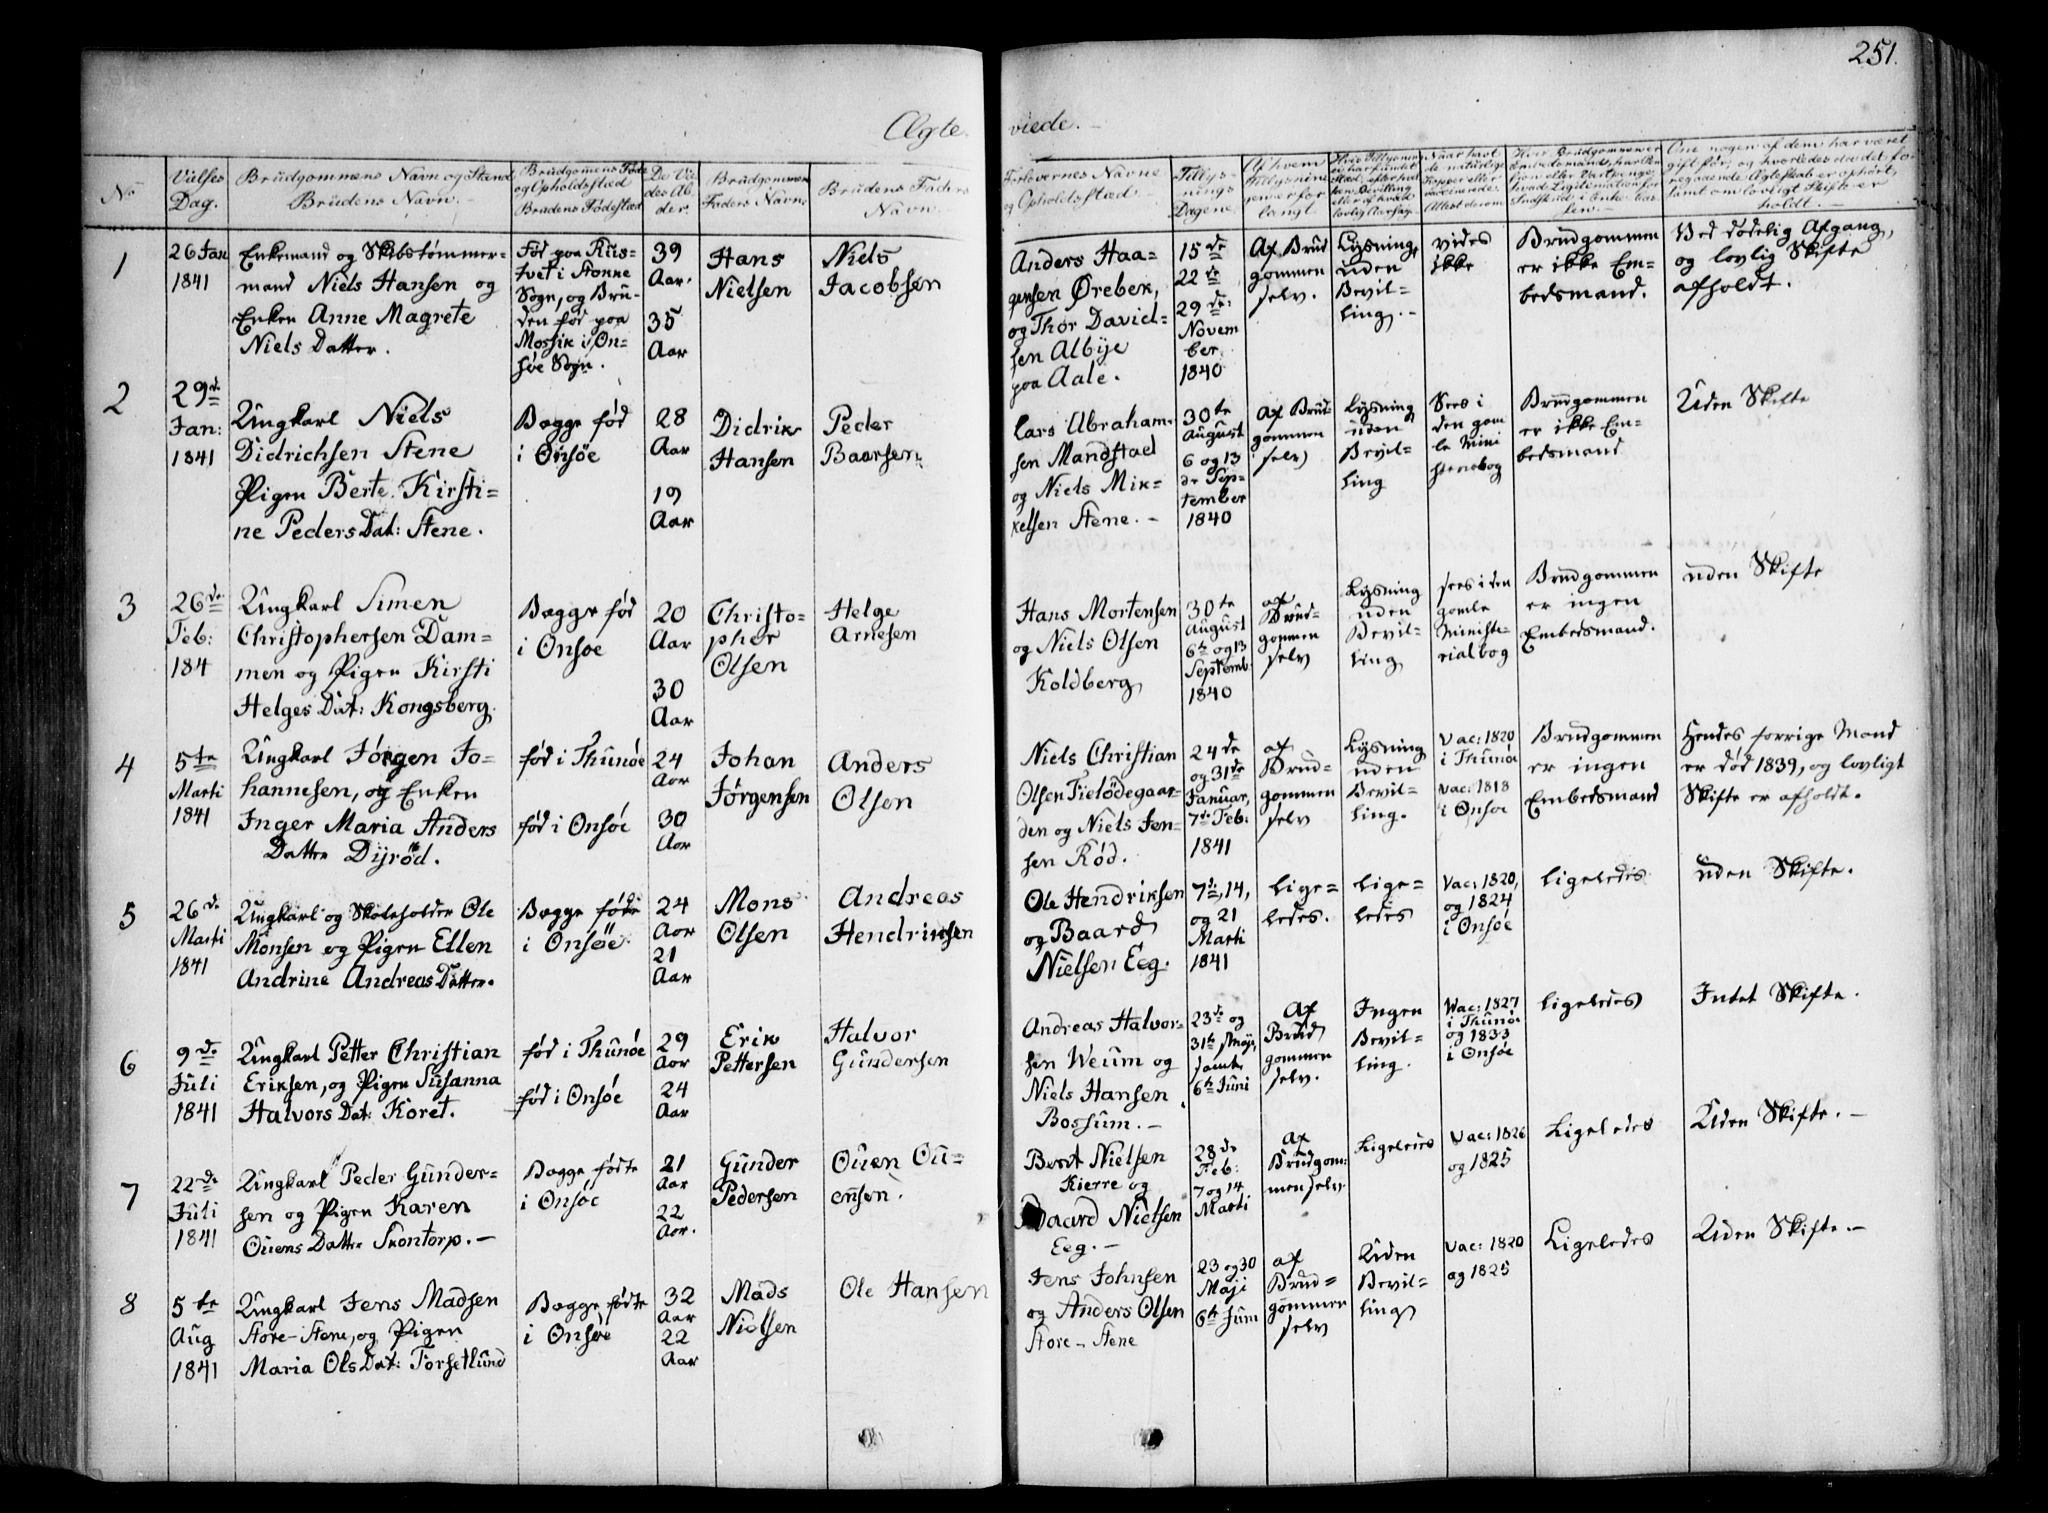 251.
Ægte viede.
No
Vielses
Dag.
Brudgommens Navn og Stand
Brudens Navn.
Brudgomens Føde
og Opholdsstæd
Brudens Fødestæd
De Vi
des Al
der.
Brudgommens
Faders Navn
Brudens Faders
Navn.
Forlovernes Navne
og Opholdsstæd
Tillys-
nings
Dagene
Af hvem
Tillysnin
gen er for
langt.
Om nogen af dem har været
gift før, og hvorledes da det fo-
regaaende Ægteskab er ophørt,
samt om lovligt Skifte er
holdt.
1
26 Jan
1841
Enkemand og Skibstømmer-
mand Niels Hansen og
Enken Anne Magrete
Niels Datter.
Fød paa Rus-
tvet i Tønne
Sogn, og Bru-
den fød paa
Mossik i On-
søe Sogn.
39
Aar.
35
Aar
Hans
Nielsen
Niels
Jacobsen
Anders Haa-
gensen Ørebek,
og Thor David-
sen Albye
paa Aale.
15de
22de
29de
Novem
ber
1840
Af Brud
gommen
selv.
Lysning
uden
Bevil-
ling.
vides
ikke
Brudgommen
er ikke Em-
bedsmand.
Ved dødelig Afgang,
og lovlig Skifte
afholdt.
2
29de
Jan:
1841
Ungkarl Niels
Didrichsen Stene
Pigen Berte Kirsti-
ne Peders Dat: Stene.
Bægge fød
i Onsöe
28
Aar
19
Aar
Didrik
Hansen
Peder
Baarsen
Lars Abraham-
sen Mandstad
og Niels Mik-
kelsen Stene.
30te
August
6 og 13
de Sep-
tember
1840
Af Brud-
gommen
selv
Lysning
uden
Bevil-
ling
Sees i
den gam
le Mini
steriebog
Brudgommen
er ikke Em-
bedsmand
Uden Skifte
3
26de
Feb:
184
Ungkarl Simen
Christophersen Dam-
men og Pigen Kirsti
Helges Dat: Kongsberg.
Bægge fød
i Onsoe
20
Aar
30
Aar
Christo-
pher
Olsen
Helge
Arnesen
Hans Mortensen
og Niels Olsen
Koldberg
30te
August
6te og 13
Septemb.
1840
af
Brud-
gommen
selv
Lysning
uden
Bevil-
ling
sees i den
gamle
Ministe-
rialbog
Brudgommen
er ingen
Embedsmand.
uden Skifte
4
5te
Marti
1841
Ungkarl Jørgen Jo-
hannesen, og Enken
Inger Maria Anders
Datter Dyrød.
fød i Thunöe
fød i Onsöe
24
Aar
30
Aar
Johan
Jørgensen
Anders
Olsen
Niels Christian
Olsen Tielødegaar-
den og Niels Jen-
sen Rød.
24de
og 31de
Januar,
7de Feb:
1841
af
Brud-
gommen
selv
Lysning
uden
Bevil-
ling.
Vac: 1820
i Thunöe
Vac: 1818
i Onsoe
Brudgommen
er ingen
Embedsmand
Hendes forrige Mand
er død 1839, og lovligt
Skifte er afholdt.
5
26de
Marti
1841
Ungkarl og Skoleholder Ole
Monsen og Pigen Ellen
Andrine Andreas Datter.
Bægge føde
i Onsöe
24
Aar
21
Aar
Mons
Olsen
Andreas
Hendriksen
Ole Hendriksen
og Baard
Nielsen Eeg.
7de, 14,
og 21
Marti
1841
lige-
ledes.
lige-
ledes
Vac: 1820,
og 1824
i Onsöe
ligeledes
uden Skifte.
6
9de
Juli
1841
Ungkarl Petter Christian
Eriksen, og Pigen Susanna
Halvors Dat: Koret.
fød i Thunöe
fød i Onsöe
29
Aar
24
Aar
Erik
Pettersen
Halvor
Gundersen
Andreas Halvor-
sen Weum og
Niels Hansen
Bossum.
23de og
31te Maji,
samt
6te Juni
Af
Brud
gommen
selv.
Ingen
Bevil-
ling.
Wac: 1827
i Thunöe
og 1833
i Onsöe
ligeledes
Intet Skifte.
7
22de
Juli
1841
Ungkarl Peder Gunder-
sen og Pigen Karen
Ouens Datter Skontorp.
Bægge fødte
i Onsöe
21
Aar
22
Aar.
Gunder
Pedersen
Ouen Ou-
ensen.
Beret Nielsen
Kierre og
Baard Nielsen
Eeg.
28de
Feb:
7 og 14
Marti
Af
Brudgom-
men selv
Ligeledes
Vac: 1826
og 1825
Ligeledes
Uden Skifte.
8
5te
Aug
1841
Ungkarl Jens Madsen
Store-Stene, og Pigen
Maria Ols Dat: Torsetlund
Bægge fødte
i Onsøe
32
Aar
22
Aar
Mads
Nielsen
Ole Hansen
Jens Johnsen
og Anders Olsen
Store-Stene
23 og 30
Maji
6te Juni
af
Brud-
gommen
selv
Uden
Bevil-
ling
Vac: 1820
og 1825
Ligeledes
Uden Skifte.